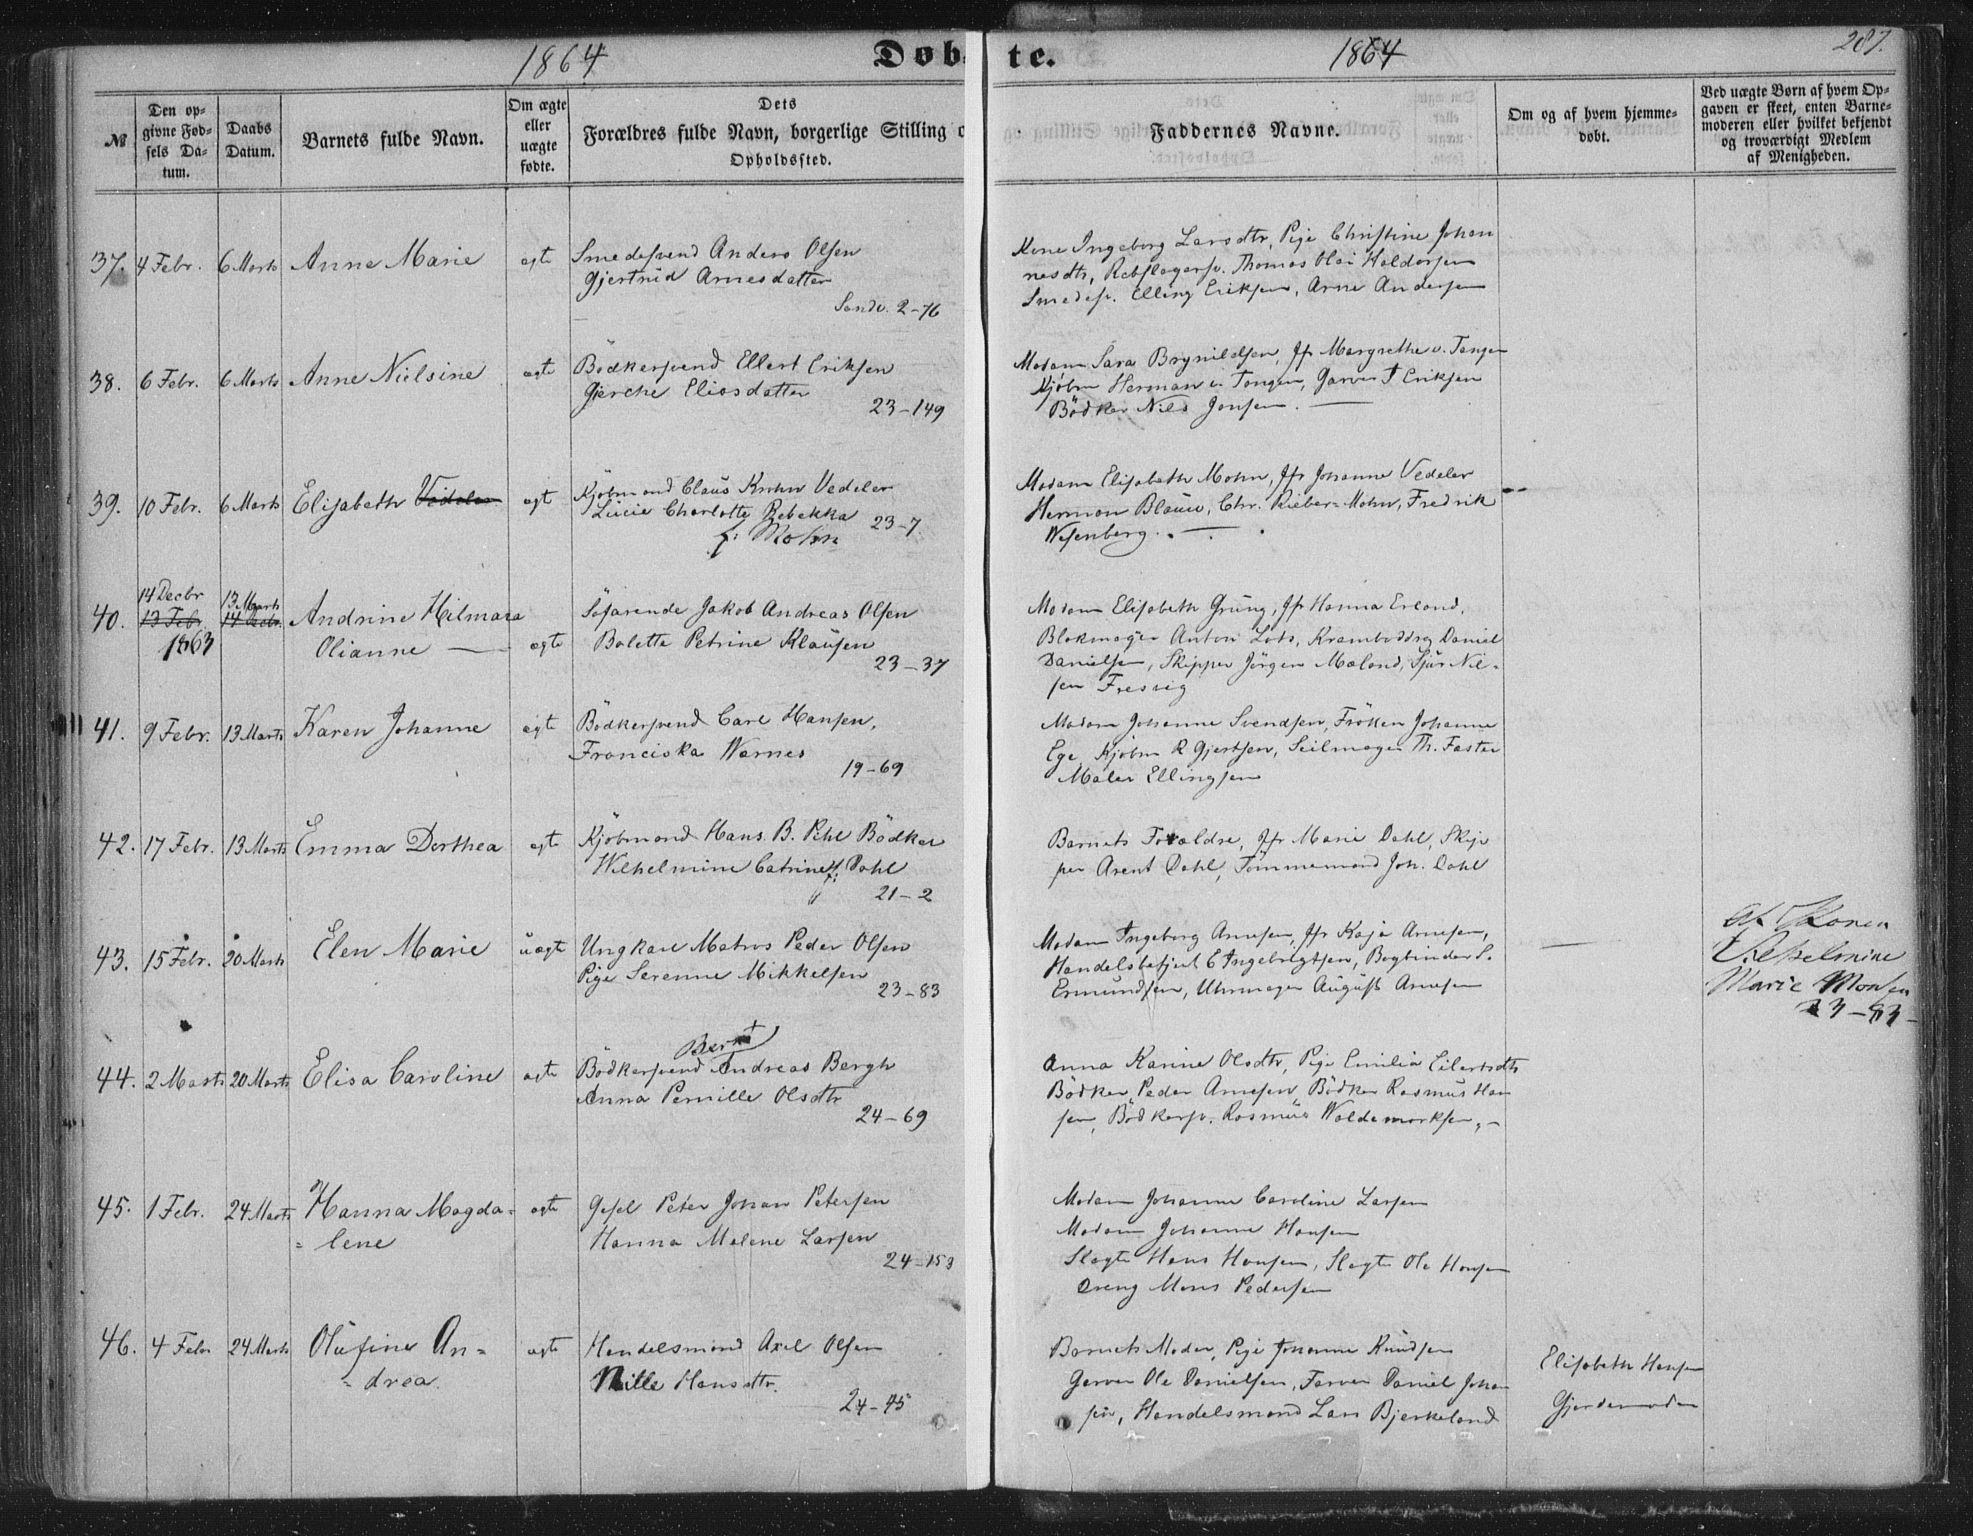 1864
Døb-
te.
1864
287.
№
Den op-
givne Fød-
sels Da-
tum.
Daabs
Datum.
Barnets fulde Navn.
Om ægte
eller
uægte
fødte.
Dets
Forældres fulde Navn, borgerlige Stilling o
Opholdssted.
Faddernes Navne.
Om og af hvem hjemme-
døbt.
Ved uægte Børn af hvem Op-
gaven er skeet, enten Barne-
moderen eller hvilket bekjendt
og troværdigt Medlem
af Menigheden.
37. 4 Febr. 6 Marts Anne Marie ægte Smedesvend Anders Olsen
Gjertrud Arnesdatter
Sandv. 2-76
Kone Ingeborg Larsdtr, Pige Christine Johan
nesdtr, Rebslagersv. Thomas Olai Haldorsen
Smedesv. Elling Eriksen, Arne Andersen
38. 6 Febr. 6 Marts Anne Nielsine ægte Bödkersvend Ellert Eriksen
Gjerche Eliasdatter
23-149
Madam Sara Brynildsen, Jfr Margrethe v. Tangen
Kjøbm Herman v. Tangen, Garver T Eriksen
Bödker Nils Jonsen.
39. 10 Febr. 6 Marts Elisabeth Vedeler ægt Kjøbmand Claus Krohn Vedeler
Lucie Charlotte Rebekka 23-7
f: Mohn
Madam Elisabeth Mohn, Jfr Johanne Vedeler
Herman Blauw, Chr. Rieber-Mohn, Fredrik
Wesenberg.
14 Decbr 13 Marts
40. 13 Febr 14 Decbr. Andrine Hilmara
1863 Olianne ægte
Söfarende Jakob Andreas Olsen
Bolette Petrine Klausen
23-37
Madam Elisabeth Grung, Jfr Hanna Erland,
Blokmager Anton Lots, Krambodkarl Daniel
Danielsen, Skipper Jörgen Maland, Sjur Nil-
sen Fresvig
41. 9 Febr. 13 Marts Karen Johanne ægte Bödkersvend Carl Hansen,
Franciska Warnes
19-69
Madam Johanne Svendsen, Fröken Johanne
Ege, Kjøbm R Gjertsen, Seilmager Th. Faster
Maler Ellingsen
42. 17 Febr. 13 Marts Emma Dorthea ægt Kjøbmand Hans B. Pihl Bödker
Wilhelmine Catrine f: Dahl
21-2
Barnets Forældre, Jfr Marie Dahl, Skip
per Arent Dahl, Tömmermand Joh. Dahl
43. 15 Febr. 20 Marts Elen Marie uægt Ungkarl Matros Peder Olsen
Pige Serenne Mikkelsen
23-83
Madam Ingeborg Arnesen, Jfr Kaja Arnesen,
Handelsbetjent C Ingebrigtsen, Bogbinder S.
Ermundsen, Uhrmager August Arnesen
Af Konen
Vilhelmine
Marie Monsen
23-83-
44. 2 Marts 20 Marts Elisa Caroline ægte
Bernt
Bödkersvend Andreas Bergh
Anna Pernille Olsdtr
24-69
Anna Karine Olsdtr, Pige Emilia Eilertsdtr
Bödker Peder Arnesen, Bödker Rasmus Han
sen, Bödkersv. Rasmus Woldemarksen,-
45. 1 Febr. 24 Marts Hanna Magda-
-lene
ægte Gesel Peter Johan Petersen
Hanna Malene Larsen
24-153
Madam Johanne Caroline Larsen
Madam Johanne Hansen
Slagter Hans Hansen, Slagter Ole Hansen
Dreng Mons Pedersen
46. 4 Febr 24 Marts Olufine An-
-drea.
ægte Handelsmand Axel Olsen
Nille Hansdtr.
24-45
Barnets Moder, Pige Johanne Knudsen
Garver Ole Danielsen, Farver Daniel Johan
sen, Handelsmand Lars Bjerkeland
Elisabeth Hansen
Gjordemoder